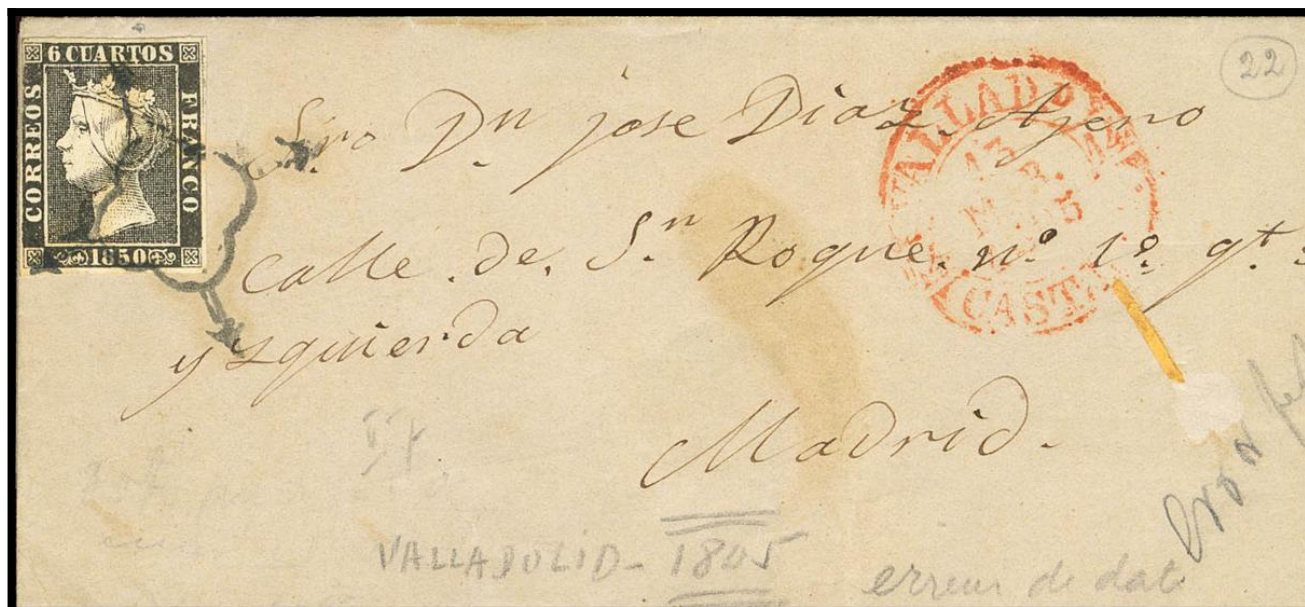 6 CUARTOS
CORREOS
FRANCO
1850
22
Sr. Dn jose Diaz Ajero
Calle de Sn Roque nº 1º qt.
yzquierda
Madrid.
VALLADOLID
13
CAST
VALLADOLID - 1805
erreur de dat